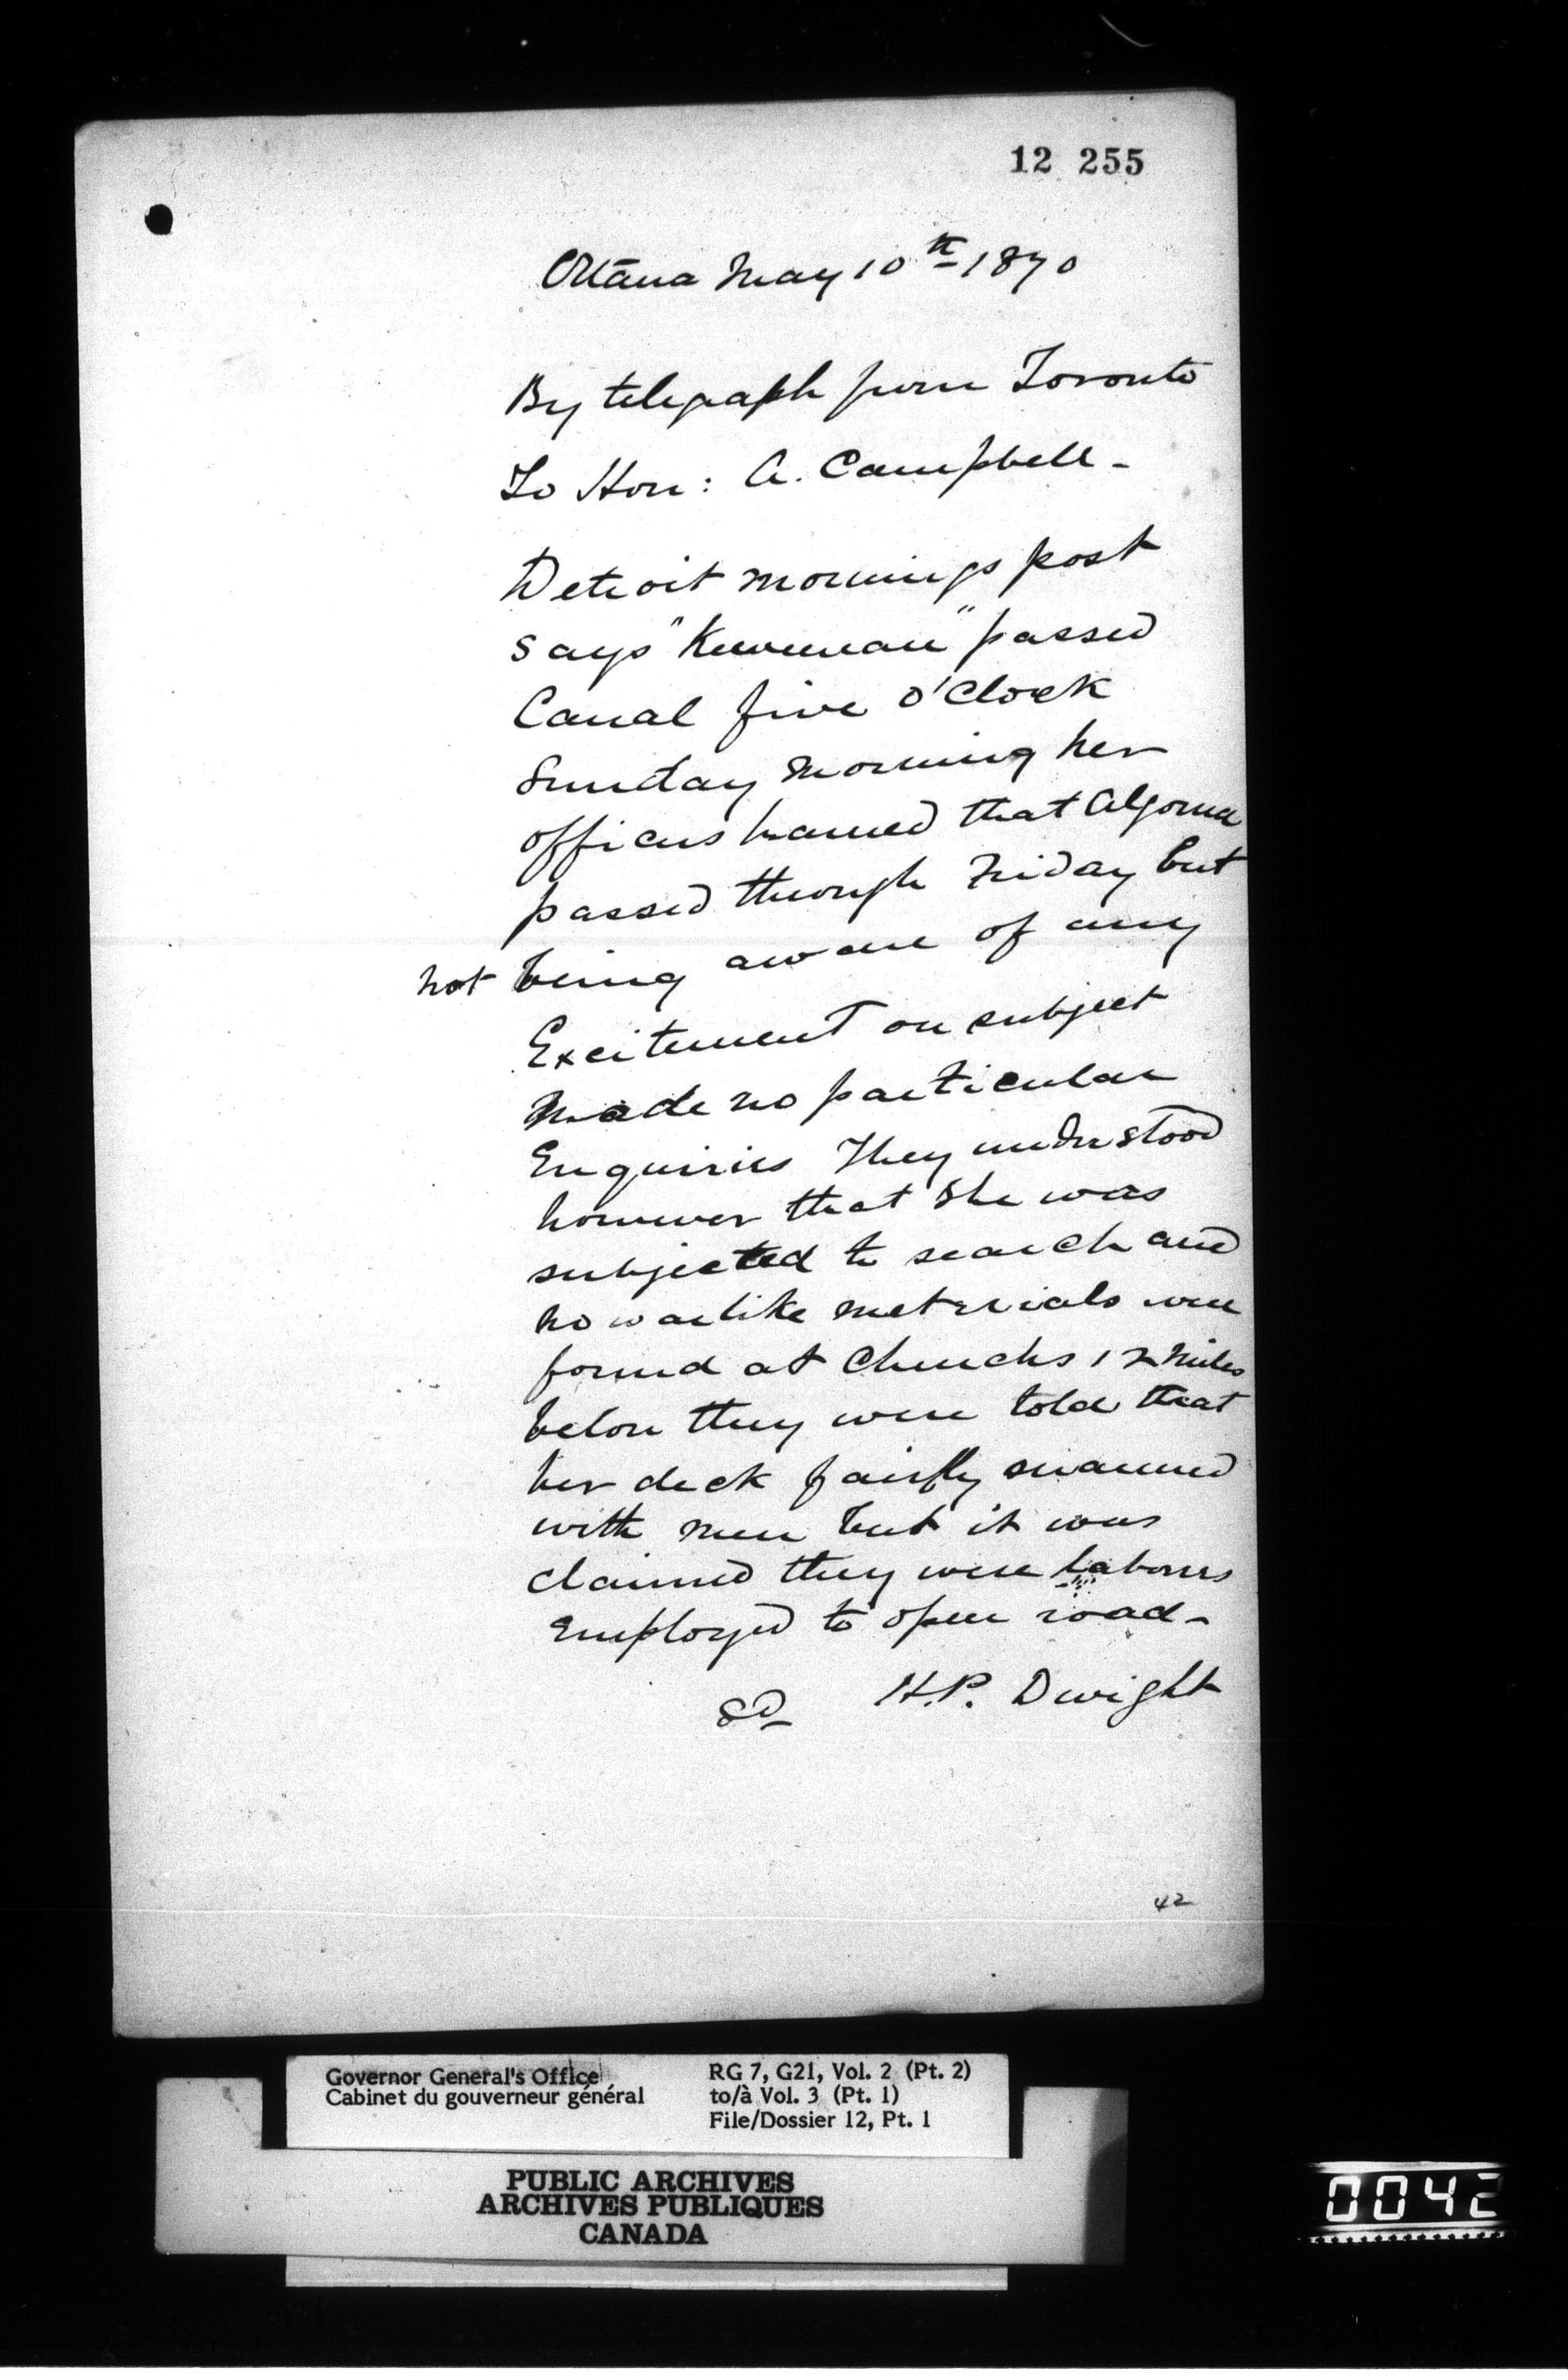 12 255
Ottawa May 10th 1870
By telegraph from Toronto
To Hon: A. Campbell -
Detroit mornings post
says "Keweenaw" passed
Canal five o'Clock
Sunday morning her
officers learned that Algoma
passed through Friday but
not being aware of any
Excitement on subject
made no particular
Enquiries They understood
however that she was
subjected to search and
no warlike materials were
found at Churchs 12 miles
below they were told that
her deck fairly swarmed
with men but it was
claimed they were labourers
Employed to open road -
sd H.P. Dwight
42
Governor General's Office
Cabinet du gouverneur général
RG 7, G21, Vol. 2 (Pt. 2)
to/à Vol. 3 (Pt. 1)
File/Dossier 12, Pt. 1
PUBLIC ARCHIVES
ARCHIVES PUBLIQUES
CANADA
0042